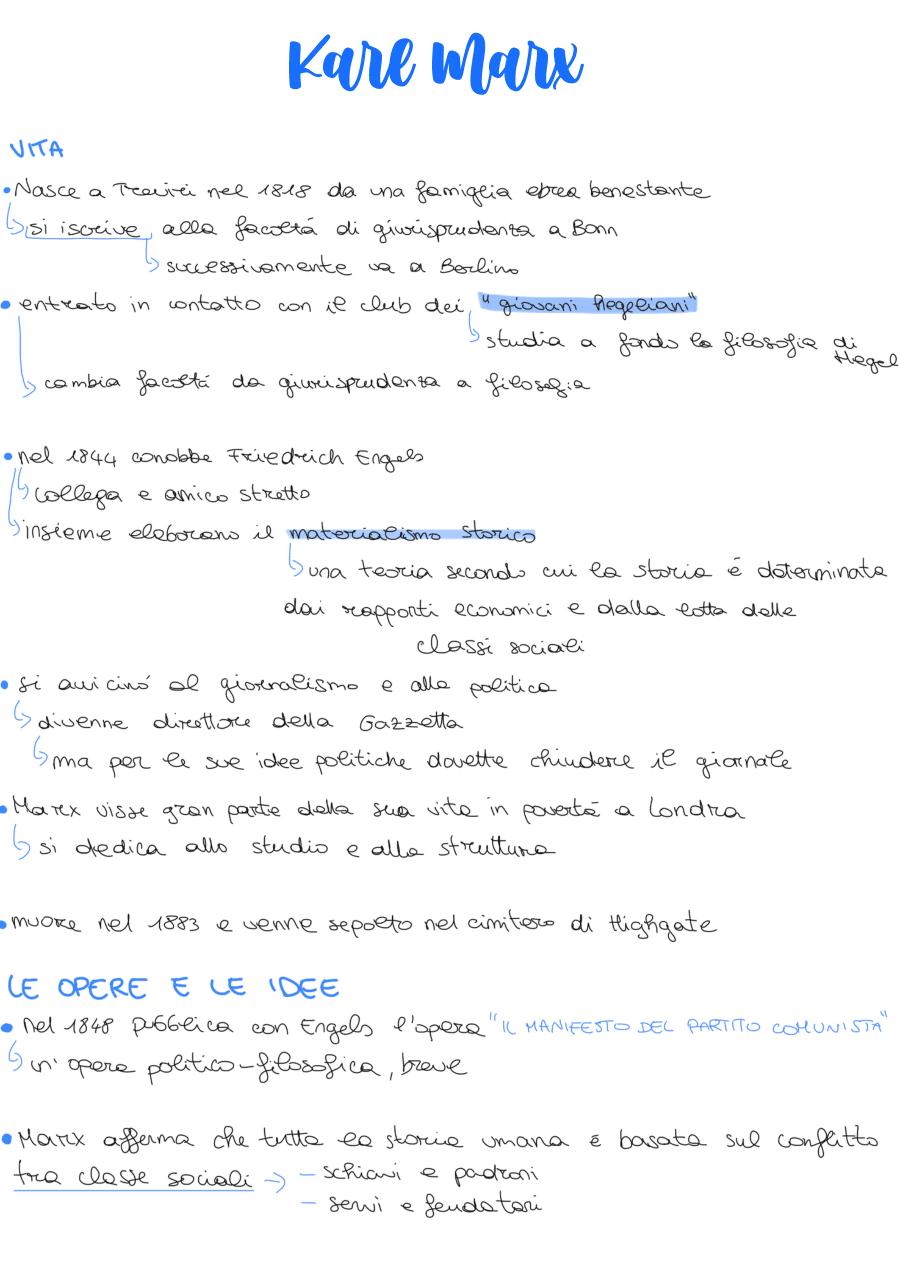 Karl Marx
VITA
• Nasce a Treviri nel 1818 da una famiglia ebrea benestante
si iscrive alla facoltá di giurisprudenza a Bonn
successivamente va a Berlino
• entrato in contatto con il club dei "giovani hegeliani"
studia a fondo la filosofia di Hegel
cambia facoltá da giurisprudenza a filosofia
• nel 1844 conobbe Friedrich Engels
collega e amico stretto
insieme elaborano il materialismo storico
una teoria secondo cui la storia é determinata
dai rapporti economici e dalla lotta delle
classi sociali
• si avvicinó al giornalismo e alla politica
divenne direttore della Gazzetta
ma per le sue idee politiche dovette chiudere il giornale
• Marx visse gran parte della sua vita in povertá a Londra
si dedica allo studio e alla struttura
• muore nel 1883 e venne sepolto nel cimitero di Highgate
LE OPERE E LE IDEE
• nel 1848 pubblica con Engels l'opera "IL MANIFESTO DEL PARTITO COMUNISTA"
un'opera politico-filosofica, breve
• Marx afferma che tutta la storia umana é basata sul conflitto
tra classe sociali → - schiavi e padroni
- servi e feudatari